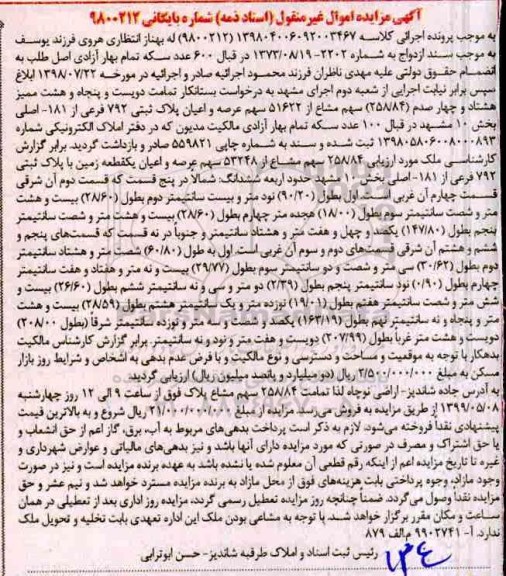 آگهی مزایده اموال غیرمنقول (اسناد ذمه) شماره بایگانی ۹۸۰۰۲۱۲
به موجب پرونده اجرائی کلاسه ۱۳۹۸۰۴۰۰۶۰۹۲۰۰۳۴۶۷ (۹۸۰۰۲۱۲) له بهناز انتظاری هروی فرزند یوسف
به موجب سند ازدواج به شماره ۲۲۰۲-۱۳۷۳/۰۸/۱۹ در قبال ۶۰۰ عدد سکه تمام بهار آزادی اصل طلب به
انضمام حقوق دولتی علیه مهدی ناظران فرزند محمود اجرائیه صادر و اجرائیه در مورخه ۱۳۹۸/۰۷/۲۲ ابلاغ
سپس برابر نیابت اجرایی از شعبه دوم اجرای مشهد به درخواست بستانکار تمامت دویست و پنجاه و هشت ممیز
هشتاد و چهار صدم (۲۵۸/۸۴) سهم مشاع از ۵۱۶۲۲ سهم عرصه و اعیان پلاک ثبتی ۷۹۲ فرعی از ۱۸۱- اصلی
بخش ۱۰ مشهد در قبال ۱۰۰ عدد سکه تمام بهار آزادی مالکیت مدیون که در دفتر املاک الکترونیکی شماره
۱۳۹۸۰۵۸۰۶۰۰۸۰۰۰۸۹۳ ثبت شده و سند به شماره چاپی ۵۵۹۸۲۱ صادر و بازداشت گردید. برابر گزارش
کارشناسی ملک مورد ارزیابی ۲۵۸/۸۴ سهم مشاع از ۵۳۲۴۸ سهم عرصه و اعیان یکقطعه زمین با پلاک ثبتی
۷۹۲ فرعی از ۱۸۱-اصلی بخش ۱۰ مشهد حدود اربعه ششدانگ: شمالا در پنج قسمت که قسمت دوم آن شرقی
قسمت چهارم آن غربی است. اول بطول (۹۰/۲۰) نود متر و بیست سانتیمتر دوم بطول (۲۸/۶۰) بیست و هشت
متر و شصت سانتیمتر سوم بطول (۱۸/۰۰) هجده متر چهارم بطول (۲۸/۶۰) بیست و هشت متر و شصت سانتیمتر
پنجم بطول (۱۴۷/۸۰) یکصد و چهل و هفت متر و هشتاد سانتیمتر و جنوباً در نه قسمت که قسمت‌های پنجم و
ششم و هشتم آن شرقی قسمت‌های دوم و سوم آن غربی است. اول به طول (۶۰/۸۰) شصت متر و هشتاد سانتیمتر
دوم بطول (۳۰/۶۲) سی متر و شصت و دو سانتیمتر سوم بطول (۲۹/۷۷) بیست و نه متر و هفتاد و هفت سانتیمتر
چهارم بطول (۰/۹۰) نود سانتیمتر پنجم بطول (۲/۳۹) دو متر و سی و نه سانتیمتر ششم بطول (۲۶/۶۰) بیست و
شش متر و شصت سانتیمتر هفتم بطول (۱۹/۰۱) نوزده متر و یک سانتیمتر هشتم بطول (۲۸/۵۹) بیست و هشت
متر و پنجاه و نه سانتیمتر نهم بطول (۱۶۳/۱۹) یکصد و شصت و سه متر و نوزده سانتیمتر شرقا (بطول ۲۰۸/۰۰)
دویست و هشت متر غرباً بطول (۲۰۷/۹۹) دویست و هفت متر و نود و نه سانتیمتر. برابر گزارش کارشناس مالکیت
بدهکار با توجه به موقعیت و مساحت و دسترسی و نوع مالکیت و با فرض عدم بدهی به اشخاص و شرایط روز بازار
مسکن به مبلغ ۲/۵۰۰/۰۰۰/۰۰۰ ریال (دو میلیارد و پانصد میلیون ریال) ارزیابی گردید.
به آدرس جاده شاندیز- اراضی نوچاه لذا تمامت ۲۵۸/۸۴ سهم مشاع پلاک فوق از ساعت ۹ الی ۱۲ روز چهارشنبه
۱۳۹۹/۰۵/۰۸ از طریق مزایده به فروش می‌رسد. مزایده از مبلغ ریال شروع و به بالاترین قیمت
پیشنهادی نقداً فروخته می‌شود. لازم به ذکر است پرداخت بدهی‌های مربوط به آب، برق، گاز اعم از حق انشعاب و
یا حق اشتراک و مصرف در صورتی که مورد مزایده دارای آنها باشد و نیز بدهی‌های مالیاتی و عوارض شهرداری و
غیره تا تاریخ مزایده اعم از اینکه رقم قطعی آن معلوم شده یا نشده باشد به عهده برنده مزایده است و نیز در صورت
وجود مازاد، وجوه پرداختی بابت هزینه‌های فوق از محل مازاد به برنده مزایده مسترد خواهد شد و نیم عشر و حق
مزایده نقداً وصول می‌گردد. ضمناً چنانچه روز مزایده تعطیل رسمی گردد، مزایده روز اداری بعد از تعطیلی در همان
ساعت و مکان مقرر برگزار خواهد شد. با توجه به مشاعی بودن ملک این اداره تعهدی بابت تخلیه و تحویل ملک
ندارد. آ- ۹۹۰۲۷۴۱ م‌الف ۸۷۹
رئیس ثبت اسناد و املاک طرقبه شاندیز- حسن ابوترابی